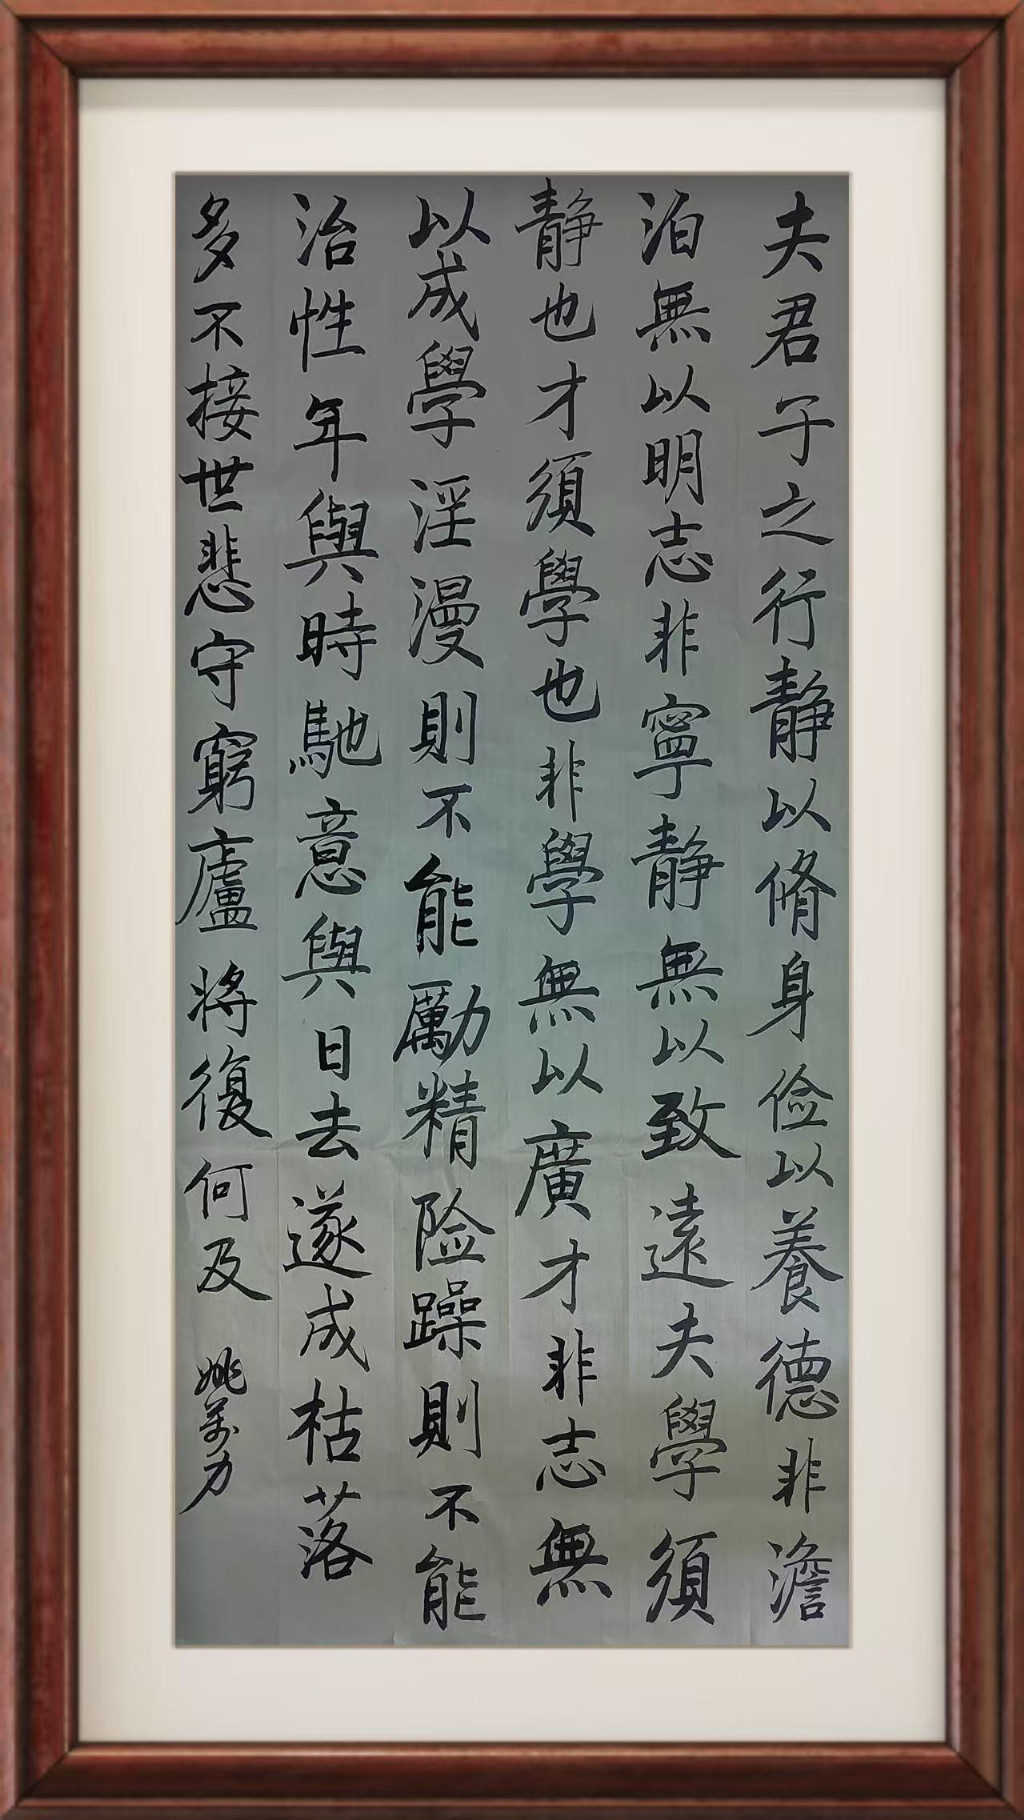 夫君子之行静以脩身俭以養德非澹
泊無以明志非寧静無以致遠夫學須
静也才須學也非學無以廣才非志無
以成學淫漫則不能勵精险躁則不能
治性年與時馳意與日去遂成枯落
多不接世悲守窮廬将復何及
姚萬力